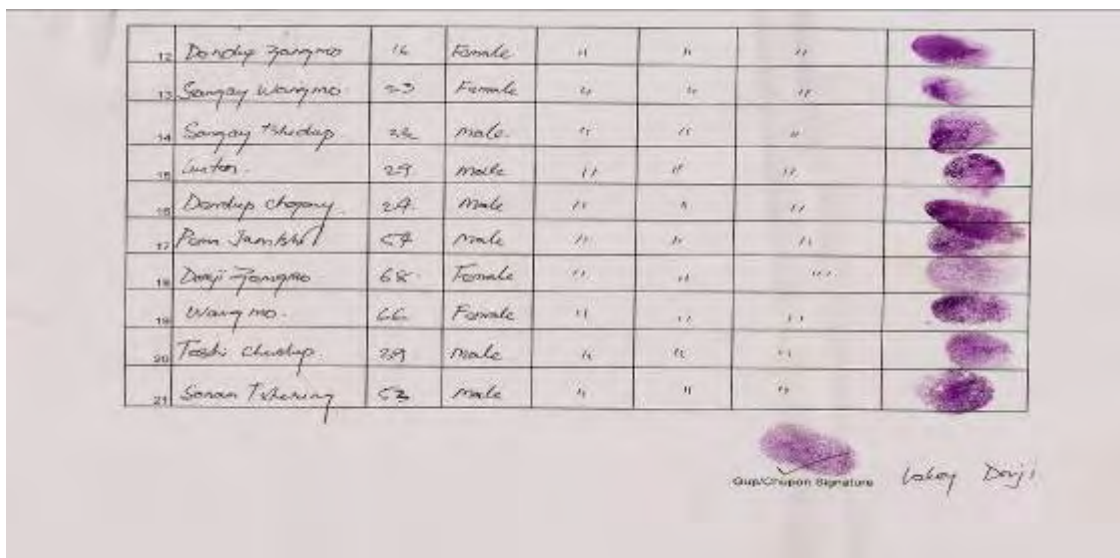 12 Dondup Zangmo 16 Female " " "
13 Sangay Wangmo 23 Female " " "
14 Sangay Tshedup 22 Male. " " "
15 29 Male " " "
16 Dondup Chogay 24 Male " " "
17 Pem 54 Male " " "
18 Dorji Zangmo 68 Female " " "
19 Wangmo. 66 Female " " "
20 Tashi 29 Male " " "
21 Sonam Tshering 53 Male " " "
Gup/Chupon Signature Dorji